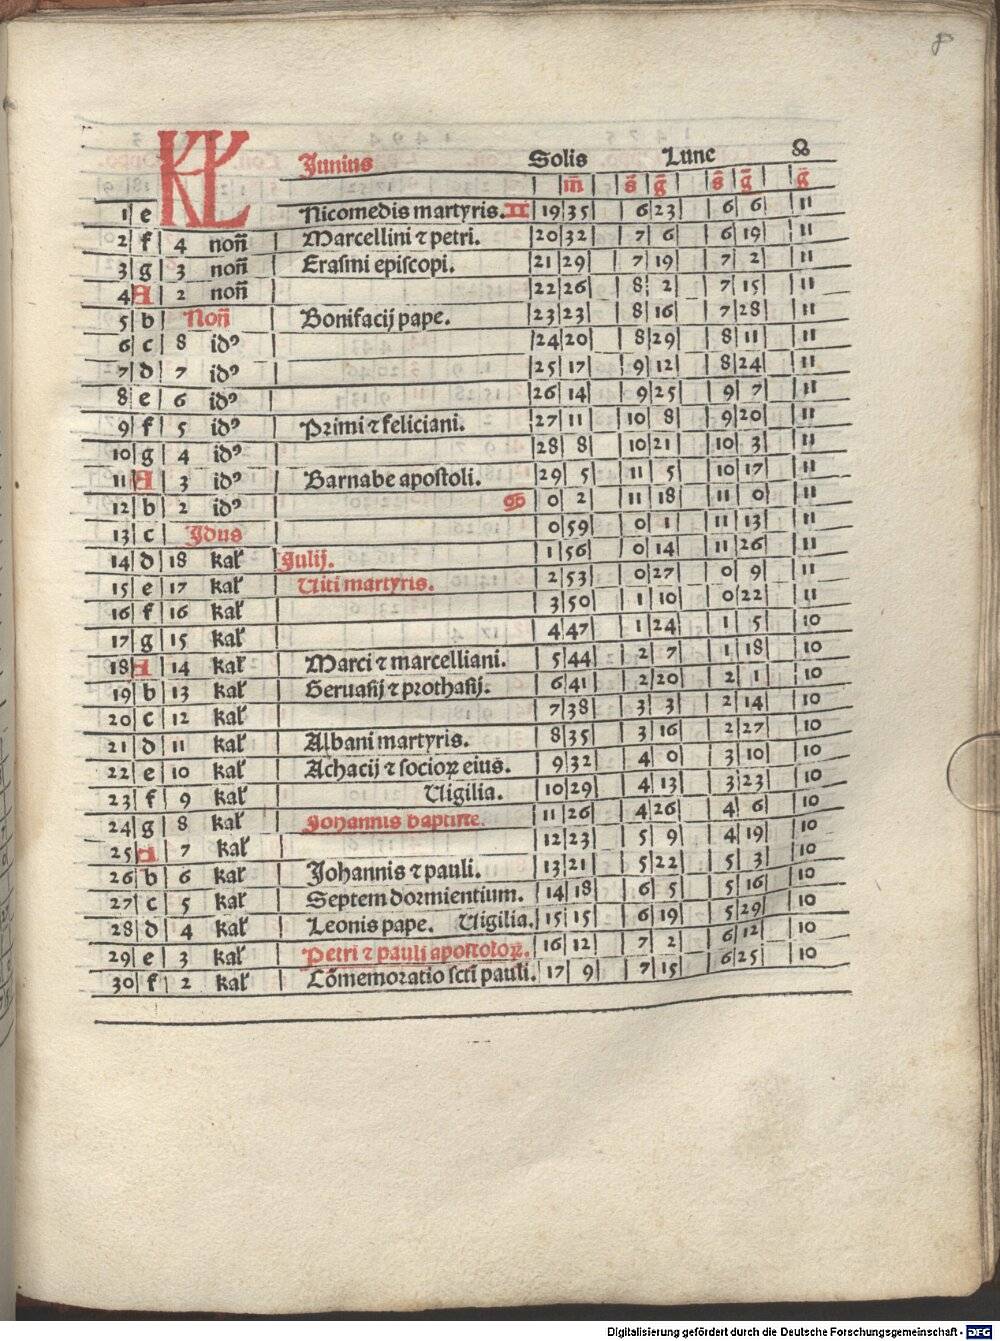 KL Junius Solis Lune ☊
m̄ s̄ ḡ s̄ ḡ ḡ
1 e Nicomedis martyris. ♊ 19 35 6 23 6 6 11
2 f 4 non̄ Marcellini ⁊ petri. 20 32 7 6 6 19 11
3 g 3 non̄ Erasmi episcopi. 21 29 7 19 7 2 11
4 A 2 non̄ 22 26 8 2 7 15 11
5 b Non̄ Bonifacij pape. 23 23 8 16 7 28 11
6 c 8 idꝰ 24 20 8 29 8 11 11
7 d 7 idꝰ 25 17 9 12 8 24 11
8 e 6 idꝰ 26 14 9 25 9 7 11
9 f 5 idꝰ Primi ⁊ feliciani. 27 11 10 8 9 20 11
10 g 4 idꝰ 28 8 10 21 10 3 11
11 A 3 idꝰ Barnabe apostoli. 29 5 11 5 10 17 11
12 b 2 idꝰ ♋ 0 2 11 18 11 0 11
13 c Jdus 0 59 0 1 11 13 11
14 d 18 kal̄ Julij. 1 56 0 14 11 26 11
15 e 17 kal̄ Viti martyris. 2 53 0 27 0 9 11
16 f 16 kal̄ 3 50 1 10 0 22 11
17 g 15 kal̄ 4 47 1 24 1 5 10
18 A 14 kal̄ Marci ⁊ marcelliani. 5 44 2 7 1 18 10
19 b 13 kal̄ Geruasij ⁊ prothasij. 6 41 2 20 2 1 10
20 c 12 kal̄ 7 38 3 3 2 14 10
21 d 11 kal̄ Albani martyris. 8 35 3 16 2 27 10
22 e 10 kal̄ Achacij ⁊ socioꝝ eius. 9 32 4 0 3 10 10
23 f 9 kal̄ Vigilia. 10 29 4 13 3 23 10
24 g 8 kal̄ Johannis baptiste. 11 26 4 26 4 6 10
25 a 7 kal̄ 12 23 5 9 4 19 10
26 b 6 kal̄ Johannis ⁊ pauli. 13 21 5 22 5 3 10
27 c 5 kal̄ Septem dormientium. 14 18 6 5 5 16 10
28 d 4 kal̄ Leonis pape. Vigilia. 15 15 6 19 5 29 10
29 e 3 kal̄ Petri ⁊ pauli apostoloꝝ. 16 12 7 2 6 12 10
30 f 2 kal̄ Cōmemoratio scti pauli. 17 9 7 15 6 25 10
Digitalisierung gefördert durch die Deutsche Forschungsgemeinschaft - DFG